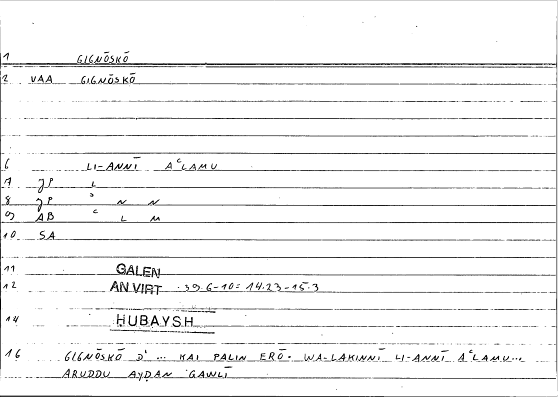 1 GIGNŌSKŌ
2 VAA GIGNŌSKŌ
6 LI-ANNĪ AʿLAMU
7 JP L
8 JP ʾ N N
9 AB ʿ L M
10 SA
11 GALEN
12 AN VIRT 39.6-10= 14.23-15.3
14 HUBAYSH
16 GIGNŌSKŌ D' ... KAI PALIN ERŌ· WA-LAKINNĪ LI-ANNĪ AʿLAMU...
ARUDDU AYḌAN QAWLĪ